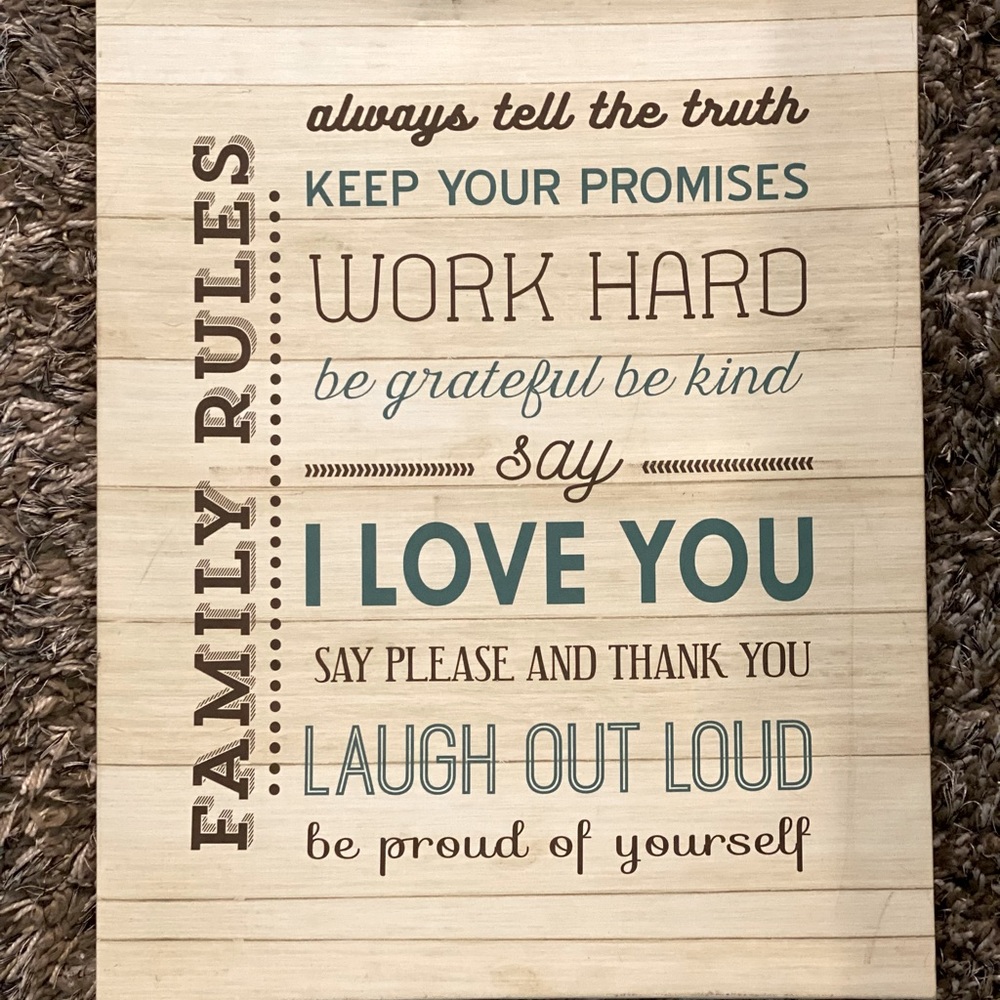 FAMILY RULES
always tell the truth
KEEP YOUR PROMISES
WORK HARD
be grateful be kind
say
I LOVE YOU
SAY PLEASE AND THANK YOU
LAUGH OUT LOUD
be proud of yourself